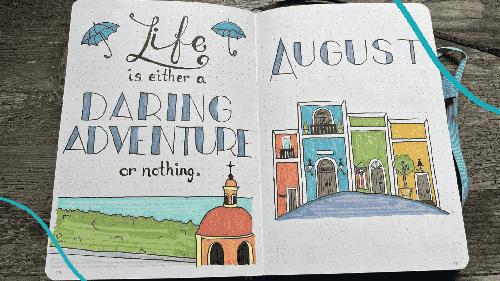 Life
is either a
DARING
ADVENTURE
or nothing.
AUGUST